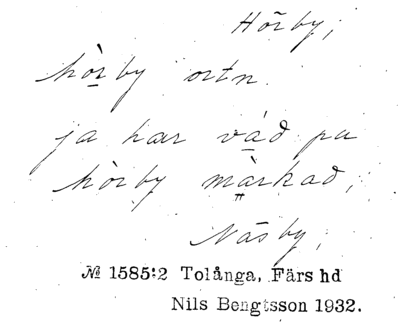 Hörby;
hò̱rby ortn.
ja har vá̱ð pu
hòrby mà̤rkað,
Näsby;
№ 1585:2 Tolånga, Färs hd
Nils Bengtsson 1932.